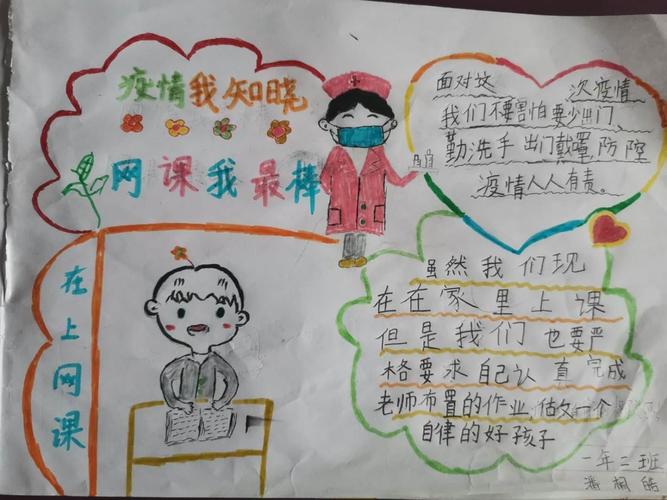 疫情我知晓
网课我最棒
在上网课
面对这次疫情
我们不要害怕要少出门
勤洗手出门戴罩防控
疫情人人有责。
虽然我们现
在在家里上课
但是我们也要严
格要求自己认真完成
老师布置的作业,做一个
自律的好孩子
一年二班